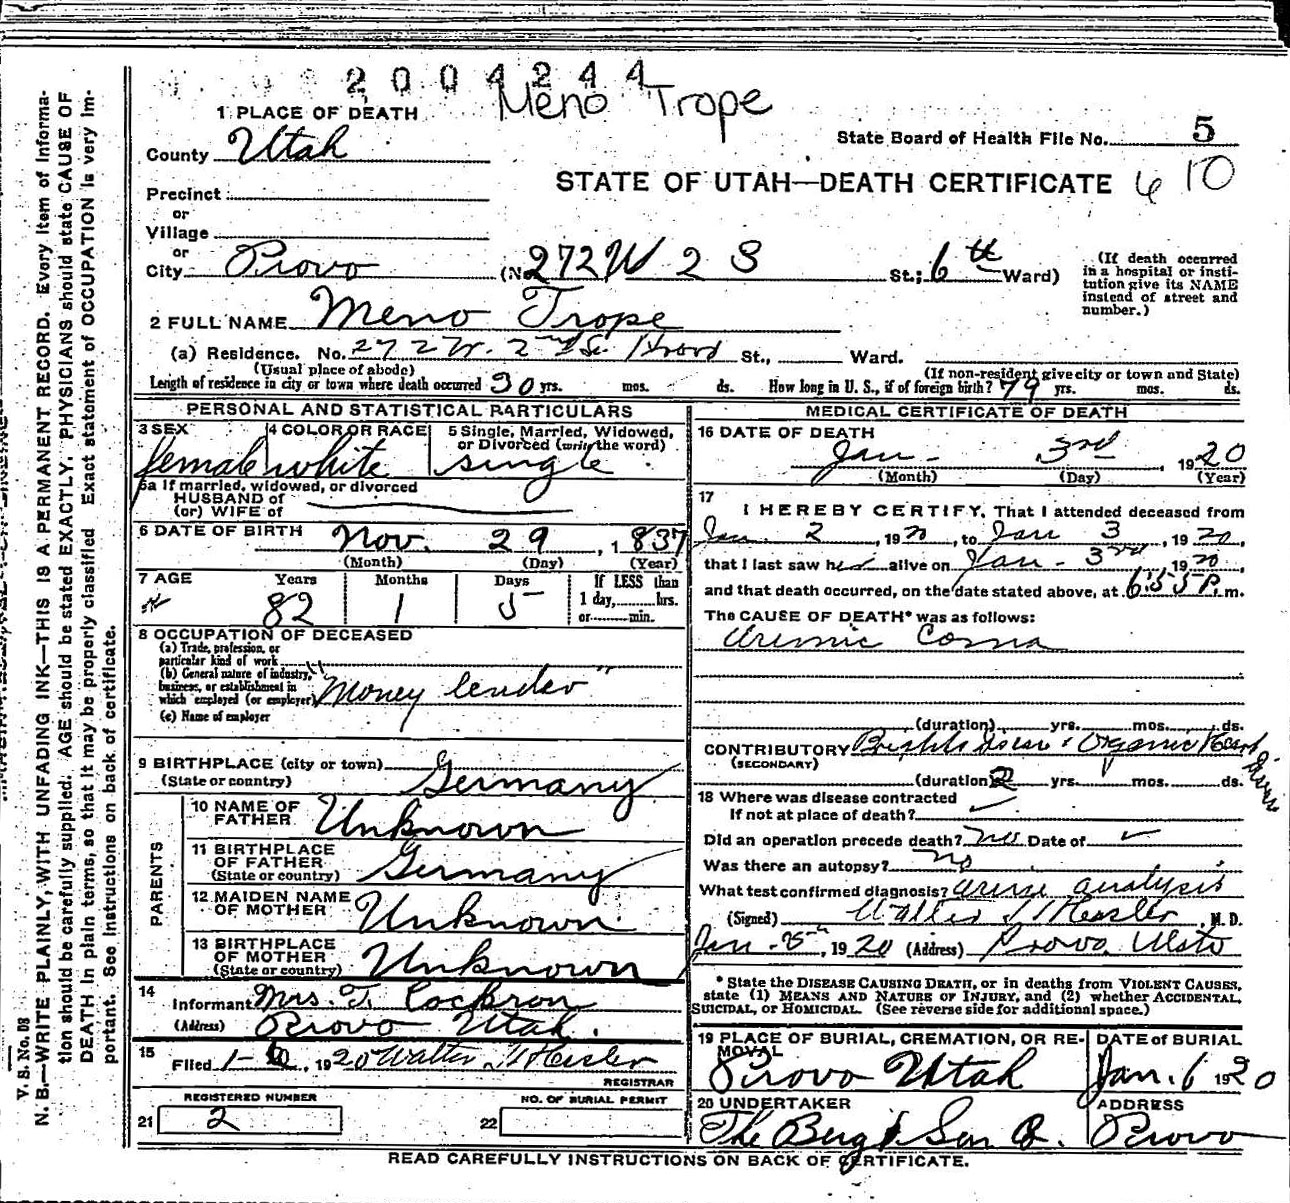 2004244
Meno Trope
1 PLACE OF DEATH
State Board of Health File No. 5
County Utah
STATE OF UTAH—DEATH CERTIFICATE 610
Precinct
or
Village
or
City Provo (No. 272 W 2 S St.; 6th Ward)
(If death occurred in a hospital or institution give its NAME instead of street and number.)
2 FULL NAME Meno Trope
(a) Residence. No. 272 W. 2nd So. Provo St., Ward.
(Usual place of abode) (If non-resident give city or town and State)
Length of residence in city or town where death occurred 30 yrs. mos. ds. How long in U. S., if of foreign birth? 79 yrs. mos. ds.
PERSONAL AND STATISTICAL PARTICULARS
3 SEX female
4 COLOR OR RACE white
5 Single, Married, Widowed, or Divorced (write the word) single
5a If married, widowed, or divorced
HUSBAND of
(or) WIFE of
6 DATE OF BIRTH Nov. 29, 1837
(Month) (Day) (Year)
7 AGE Years Months Days If LESS than
82 1 5 1 day, hrs.
or min.
8 OCCUPATION OF DECEASED
(a) Trade, profession, or
particular kind of work
(b) General nature of industry,
business, or establishment in
which employed (or employer) "Money lender"
(c) Name of employer
9 BIRTHPLACE (city or town)
(State or country) Germany
PARENTS
10 NAME OF FATHER Unknown
11 BIRTHPLACE OF FATHER (State or country) Germany
12 MAIDEN NAME OF MOTHER Unknown
13 BIRTHPLACE OF MOTHER (State or country) Unknown
14 Informant Mrs. T. Cockron
(Address) Provo Utah.
15 Filed 1-6, 1920 Walter T Hasler
REGISTRAR
REGISTERED NUMBER
21 2
NO. OF BURIAL PERMIT
22
MEDICAL CERTIFICATE OF DEATH
16 DATE OF DEATH
Jan- 3rd, 1920
(Month) (Day) (Year)
17 I HEREBY CERTIFY, That I attended deceased from
Jan 2, 1920, to Jan 3, 1920,
that I last saw her alive on Jan- 3rd, 1920,
and that death occurred, on the date stated above, at 6:55 P. m.
The CAUSE OF DEATH* was as follows:
Uremic Coma
(duration) yrs. mos. ds.
CONTRIBUTORY Brights disease & Organic Heart disease
(SECONDARY)
(duration) 2 yrs. mos. ds.
18 Where was disease contracted
If not at place of death?
Did an operation precede death? no Date of
Was there an autopsy? no
What test confirmed diagnosis? urine analysis
(Signed) Walter T Hasler, M. D.
Jan-5th, 1920 (Address) Provo, Utah
* State the DISEASE CAUSING DEATH, or in deaths from VIOLENT CAUSES,
state (1) MEANS AND NATURE OF INJURY, and (2) whether ACCIDENTAL,
SUICIDAL, or HOMICIDAL. (See reverse side for additional space.)
19 PLACE OF BURIAL, CREMATION, OR REMOVAL Provo Utah
DATE of BURIAL Jan. 6 1920
20 UNDERTAKER The Berg & Son Co.
ADDRESS Provo
READ CAREFULLY INSTRUCTIONS ON BACK OF CERTIFICATE.
V. S. No. D8
N. B.—WRITE PLAINLY, WITH UNFADING INK—THIS IS A PERMANENT RECORD. Every item of informa-
tion should be carefully supplied. AGE should be stated EXACTLY. PHYSICIANS should state CAUSE OF
DEATH in plain terms, so that it may be properly classified. Exact statement of OCCUPATION is very im-
portant. See instructions on back of certificate.